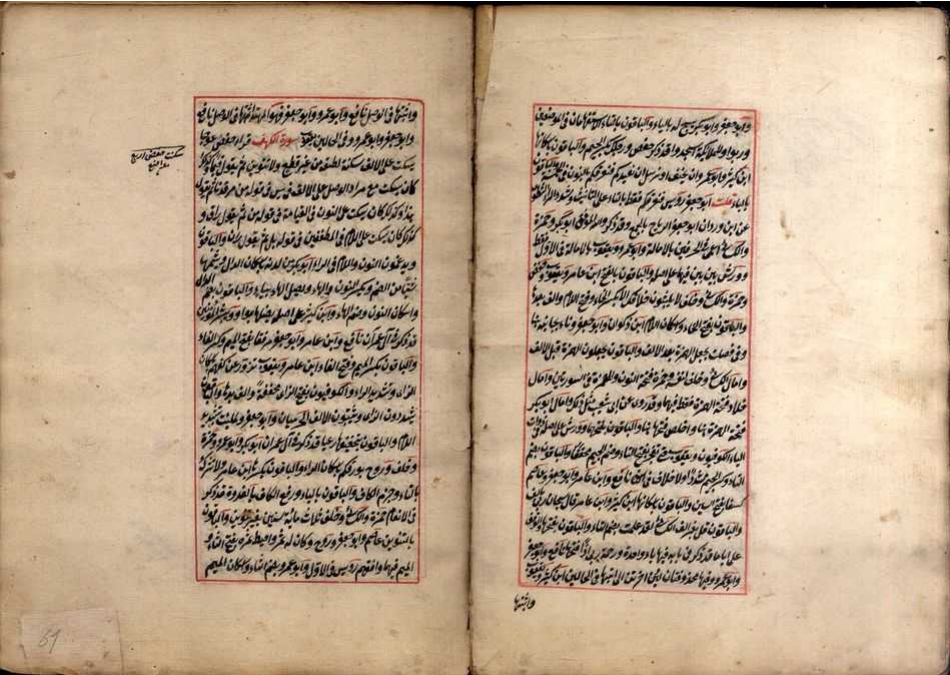 وابو جعفر وابو بكر يسبح له بالياء والباقون بالتاء الاستفهامان في الموضعين
وزبورا وللملائكة اسجدوا قد ذكر حفص ورجلك بكسر الجيم والباقون باسكانها
ابن كثير وابو عمرو ان نخسف او نرسل ان نعيدكم فنرسل فنغرقكم بالنون في خمسة والباقون
بالياء قلت ابو جعفر ورويس فتغرقكم فقط بالتاء على التانيث وشدد الراء
عن ابن وردان ابو جعفر الرياح بالجمع وقد ذكر ابو بكر وحمزة
والكسائي اعمى في الحرفين بالامالة وابو عمرو ويعقوب بالامالة في الاول فقط
وورش بين بين فيهما على اصله والباقون بالفتح ابن عامر ويعقوب وحفص
وحمزة والكسائي وخلف لا يلبثون خلافك بكسر الخاء وفتح اللام والف بعدها
والباقون بفتح الخاء واسكان اللام ابن ذكوان وابو جعفر وناء بجانبه هنا
وفي فصلت يجعل الهمزة بعد الالف والباقون يجعلون الهمزة قبل الالف
وامال الكسائي وخلف لنفسه وحمزة فتحة النون والهمزة في السورتين وامال
خلاد فتحة الهمزة فقط فيهما وقد روى عن ابي شعيب مثل ذلك وامال ابو بكر
فتحة الهمزة هنا واخلص فتحها هناك والباقون بفتحهما وورش على اصله في ذوات
الياء الكوفيون ويعقوب حتى تفجر بفتح التاء وضم الجيم مخففا والباقون بضم
التاء وكسر الجيم مشددا ولا خلاف في الثاني نافع وابن عامر وابو جعفر وعاصم
كسفا بفتح السين والباقون باسكانها ابن كثير وابن عامر قال سبحان ربي بالف
والباقون قل بغير الف الكسائي لقد علمت بضم التاء والباقون بفتحها والوقف
على اياما قد ذكر في بابه فيها ياء واحدة ورحمة ربي اذا فتحها نافع وابو جعفر
وابو عمرو وفيها محذوفتان لئن اخرتن الى اثبتها في الحالين ابن كثير ويعقوب
واثبتها
واثبتها في الوصل نافع وابو عمرو وابو جعفر فهو المهتد اثبتها في الوصل نافع
وابو جعفر وابو عمرو وفي الحالين يعقوب سورة الكهف قراء حفص عوجا
يسكت على الالف سكتة لطيفة من غير قطع ولا تنوين ثم يقول قيما وكذلك
كان يسكت مع مراد الوصل على الالف في يس في قوله من مرقدنا ثم يقول
هذا وكذلك كان يسكت على النون في القيامة في قوله من ثم يقول راق و
كذلك كان يسكت على اللام في المطففين في قوله بل ثم يقول ران والباقون
يدغمون النون واللام في الراء ابو بكر من لدنه باسكان الدال ويشمها
شيئا من الضم وبكسر النون والهاء ويصل الهاء بياء والباقون بضم الدال
واسكان النون وضم الهاء وابن كثير على اصله يصلها بواو ويبشر المؤمنين
قد ذكر في آل عمران نافع وابن عامر وابو جعفر مرفقا بفتح الميم وكسر الفاء
والباقون بكسر الميم وفتح الفاء ابن عامر ويعقوب تزور عن كهفهم باسكان
الزاى وتشديد الراء والكوفيون بفتح الزاى مخففة والف بعدها والباقون
يشددون الزاى ويثبتون الالف الحرميان وابو جعفر ولملئت بتشديد
اللام والباقون بتخفيفها رعبا قد ذكر في آل عمران ابو بكر وابو عمرو وحمزة
وخلف وروح بورقكم باسكان الراء والباقون بكسرها ابن عامر ولا تشرك
بالتاء وجزم الكاف والباقون بالياء ورفع الكاف بالغدوة قد ذكر
في الانعام حمزة والكسائي وخلف ثلاث مائة سنين بغير تنوين والباقون
بالتنوين عاصم وابو جعفر وروح وكان له ثمر واحيط بثمره بفتح الثاء و
الميم فيهما وافقهم رويس في الاول وابو عمرو بضم الثاء واسكان الميم
سكت حفص اربع
مواضع
61